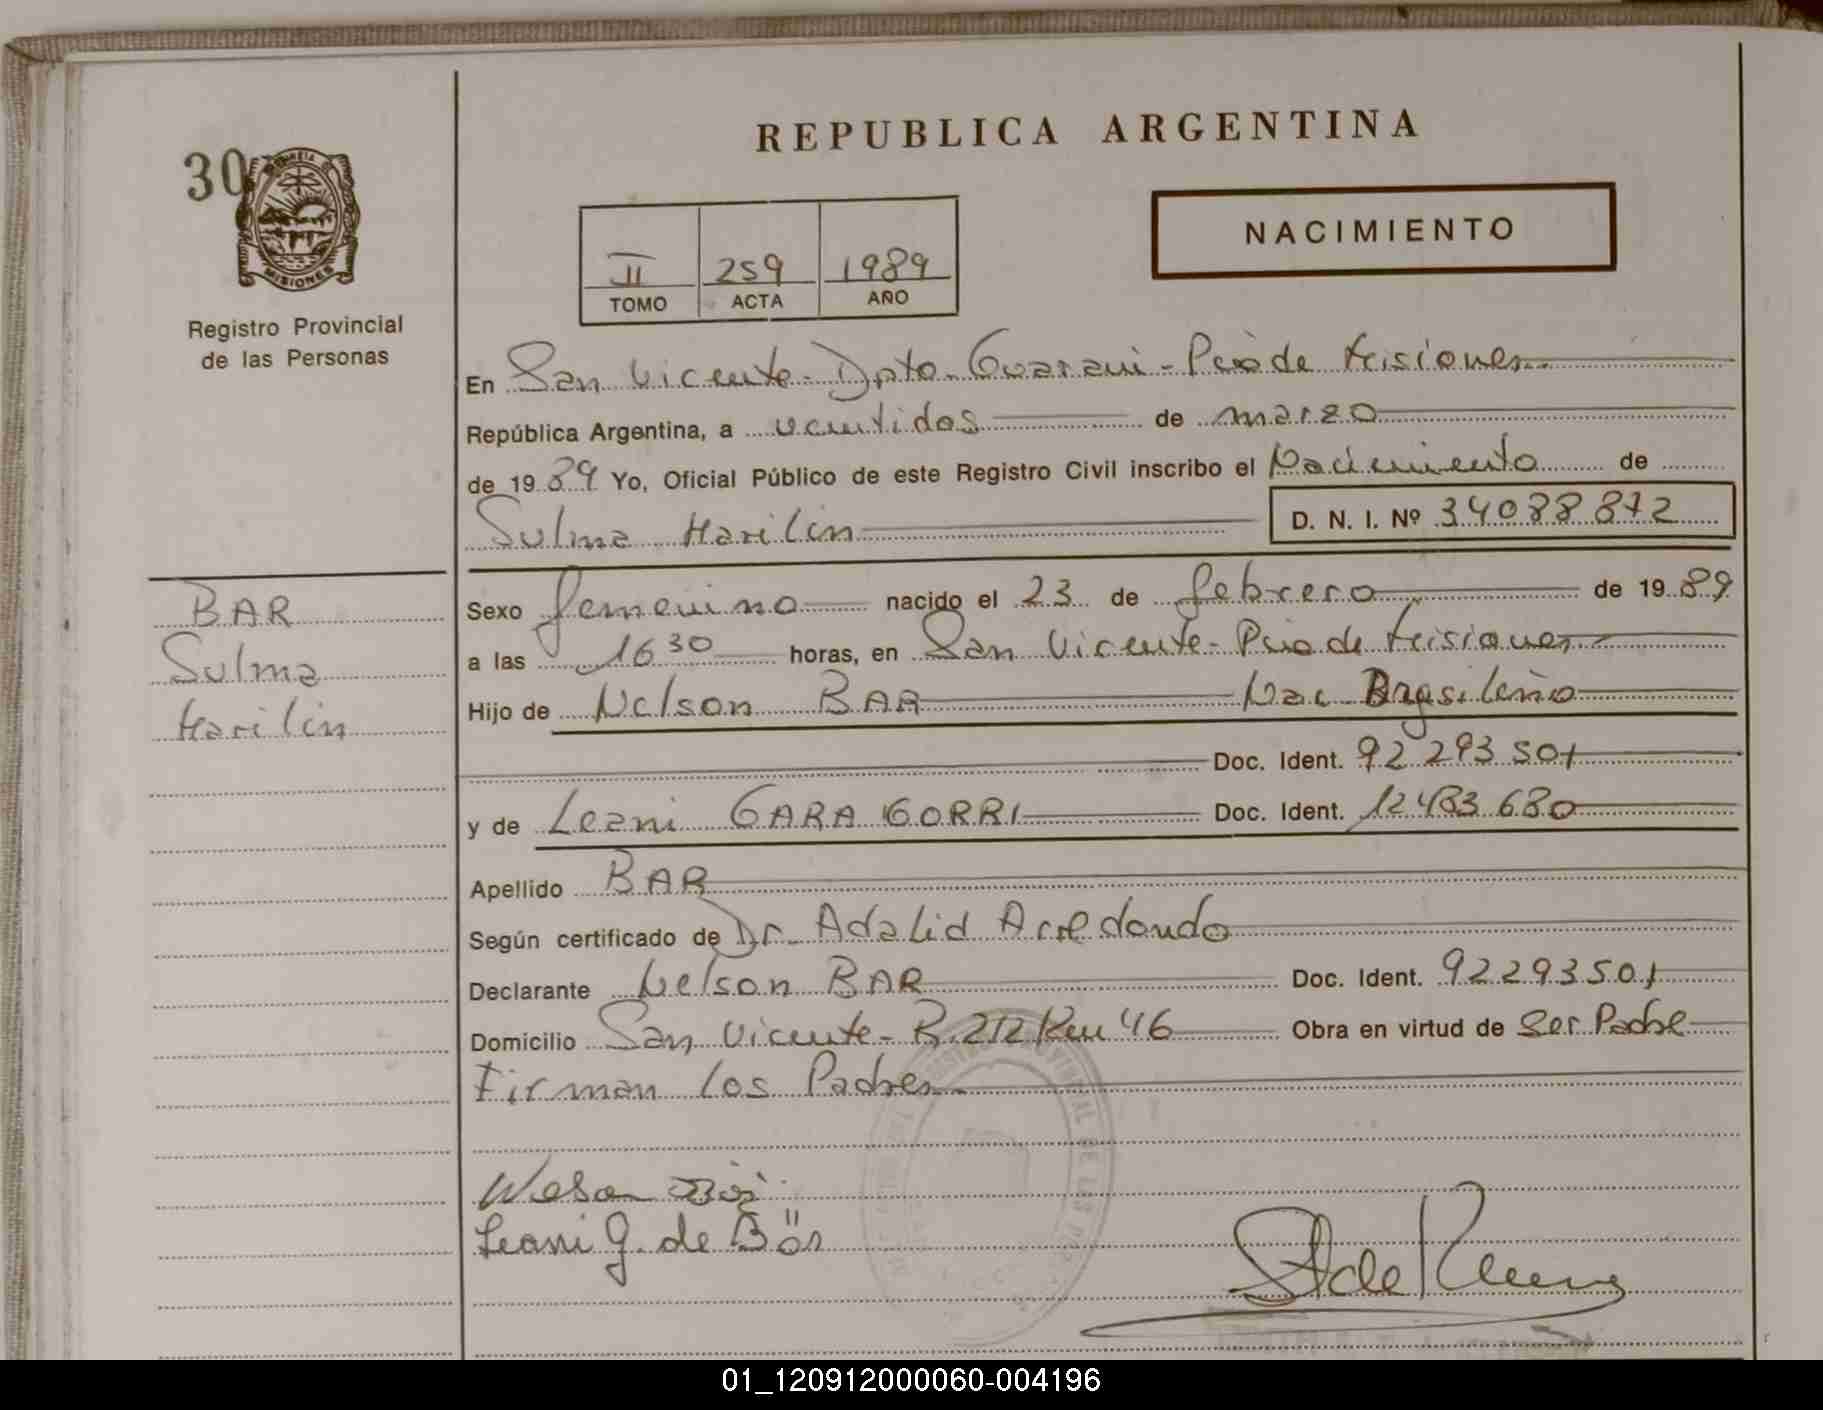 REPUBLICA ARGENTINA
30
MISIONES
NACIMIENTO
II 259 1989
TOMO ACTA AÑO
Registro Provincial
de las Personas
En San Vicente - Dpto. Guarani - Pcia de Misiones
República Argentina, a veintidos de marzo
de 1989 Yo, Oficial Público de este Registro Civil inscribo el Nacimiento de
Sulma Marilin D. N. I. Nº 34088872
BAR
Sulma
Marilin
Sexo femenino nacido el 23 de febrero de 1989
a las 16 30 horas, en San Vicente - Pcia de Misiones
Hijo de Nelson BAR Nac Brasileño
Doc. Ident. 92 293 501
y de Leani GARA GORRI Doc. Ident. 12483 680
Apellido BAR
Según certificado de Dr. Adalid Arredondo
Declarante Nelson BAR Doc. Ident. 92293501
Domicilio San Vicente - R. 212 Km 46 Obra en virtud de Ser Padre
Firman los Padres
Leani G. de Bär
01_120912000060-004196